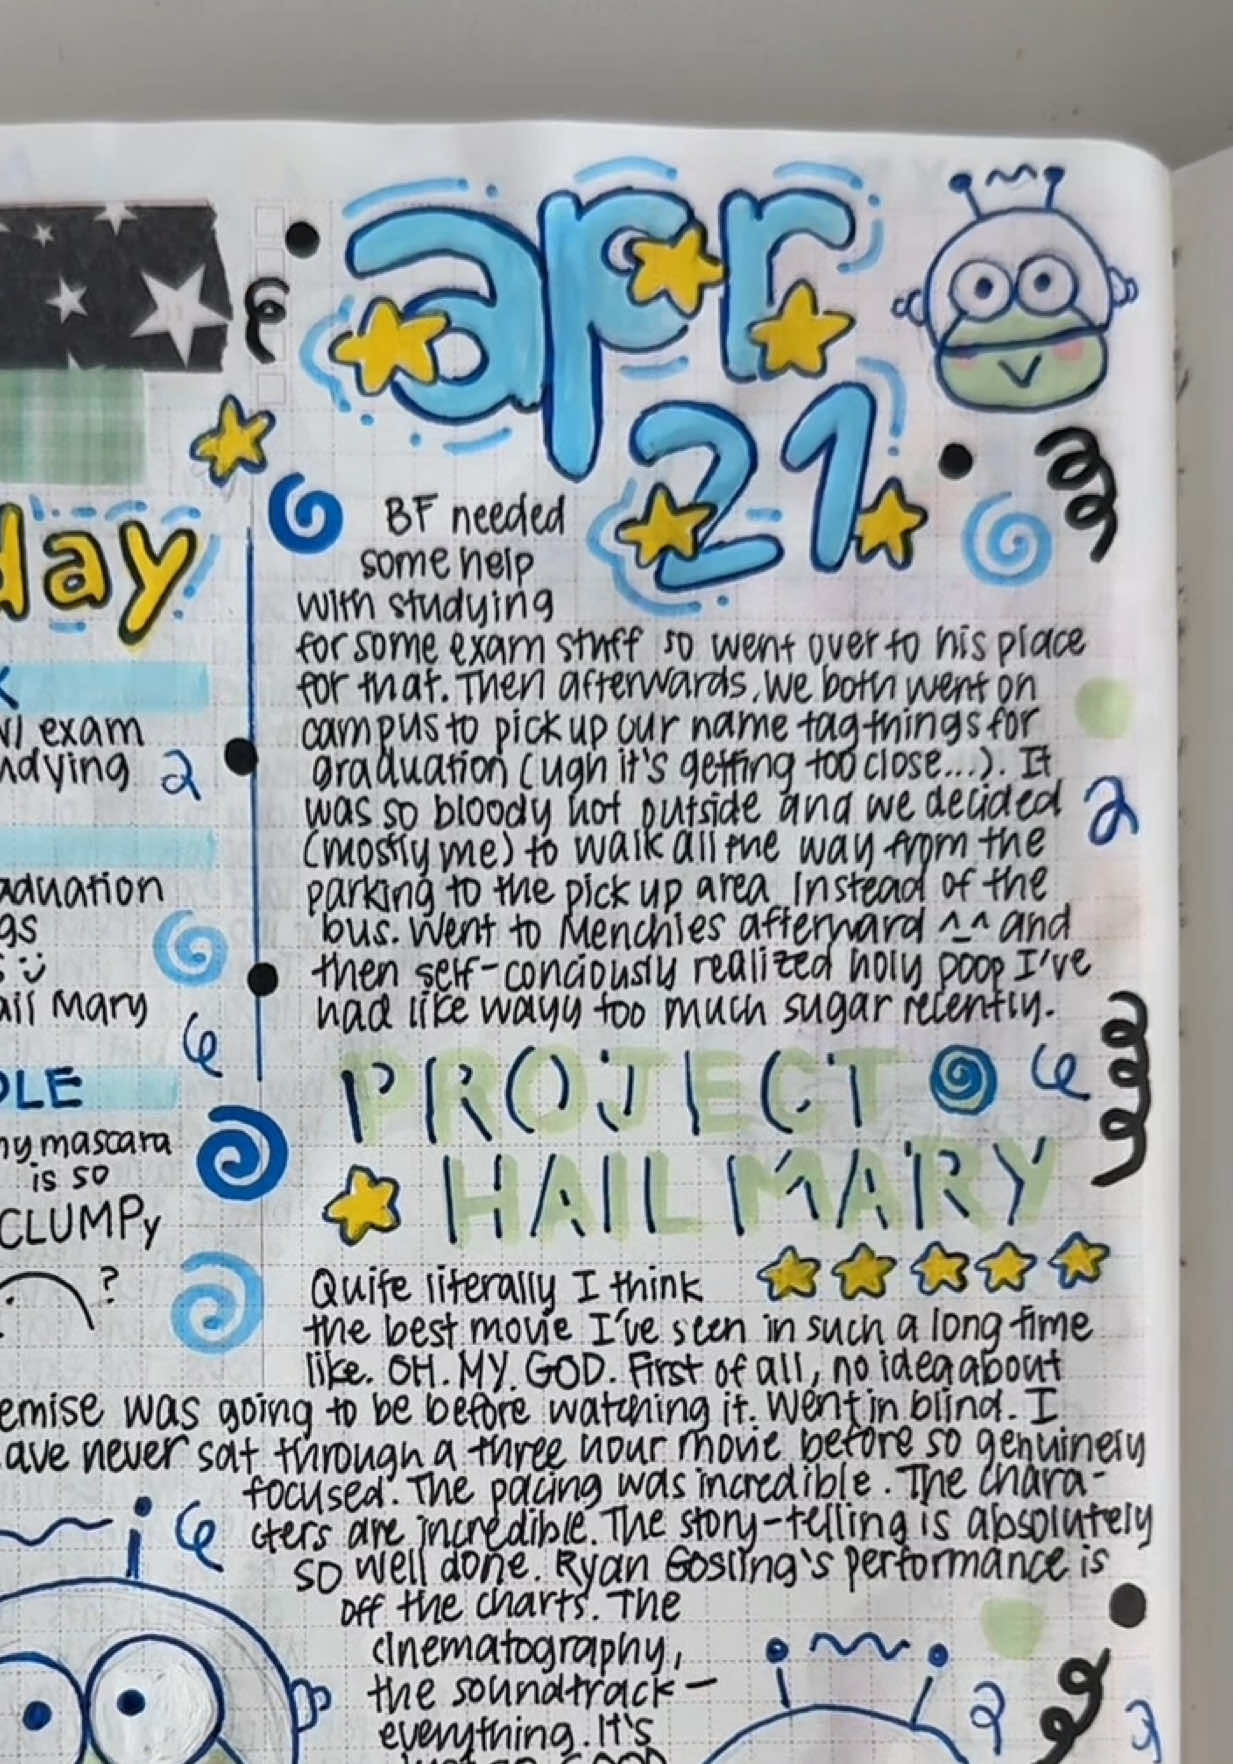 apr
21
day
BF needed
some help
with studying
for some exam stuff so went over to his place
for that. Then afterwards, we both went on
campus to pick up our name tag things for
graduation (ugh it's getting too close...). It
was so bloody hot outside and we decided
(mostly me) to walk all the way from the
parking to the pick up area instead of the
bus. Went to Menchies afterward ^_^ and
then self-conciously realized holy poop I've
had like wayy too much sugar recently.
W/ exam
2
2
6
mary
my mascara
is so
CLUMPy
?
PROJECT
HAIL MARY
6
Quite literally I think
the best movie I've seen in such a long time
like. OH. MY. GOD. First of all, no idea about
was going to be before watching it. Went in blind. I
never sat through a three hour movie before so genuinely
focused. The pacing was incredible. The chara-
cters are incredible. The story-telling is absolutely
so well done. Ryan Gosling's performance is
off the charts. The
cinematography,
the soundtrack -
everything. It's